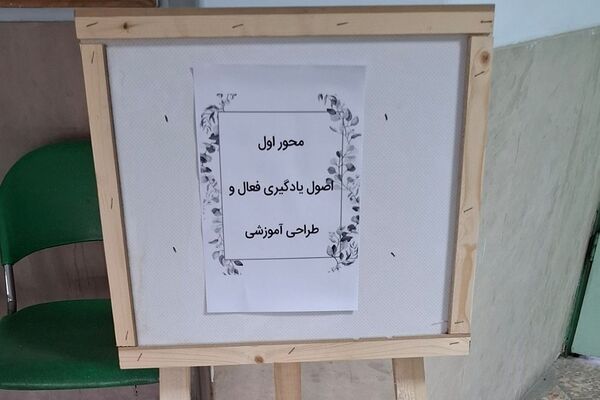 محور اول
اصول یادگیری فعال و
طراحی آموزشی